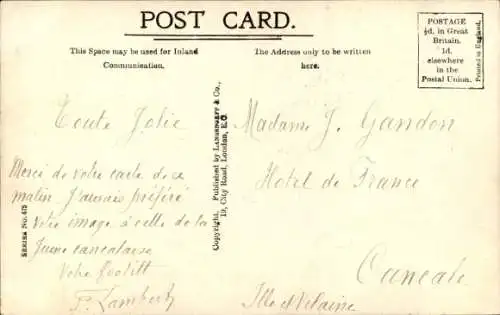 POST CARD.
This Space may be used for Inland
Communication.
The Address only to be written
here.
POSTAGE
½d. in Great
Britain.
1d.
elsewhere
in the
Postal Union.
Printed in England.
Toute Jolie
Merci de votre carte de ce
matin. J'aurais préféré
votre image à celle de la
Jeune cancalaise
Votre
P. Lambert
SERIES NO. 475
Copyright. Published by LANGSDORFF & Co.,
19, City Road, London, E.C.
Madame J. Gandon
Hotel de France
Cancale
Ille et Vilaine